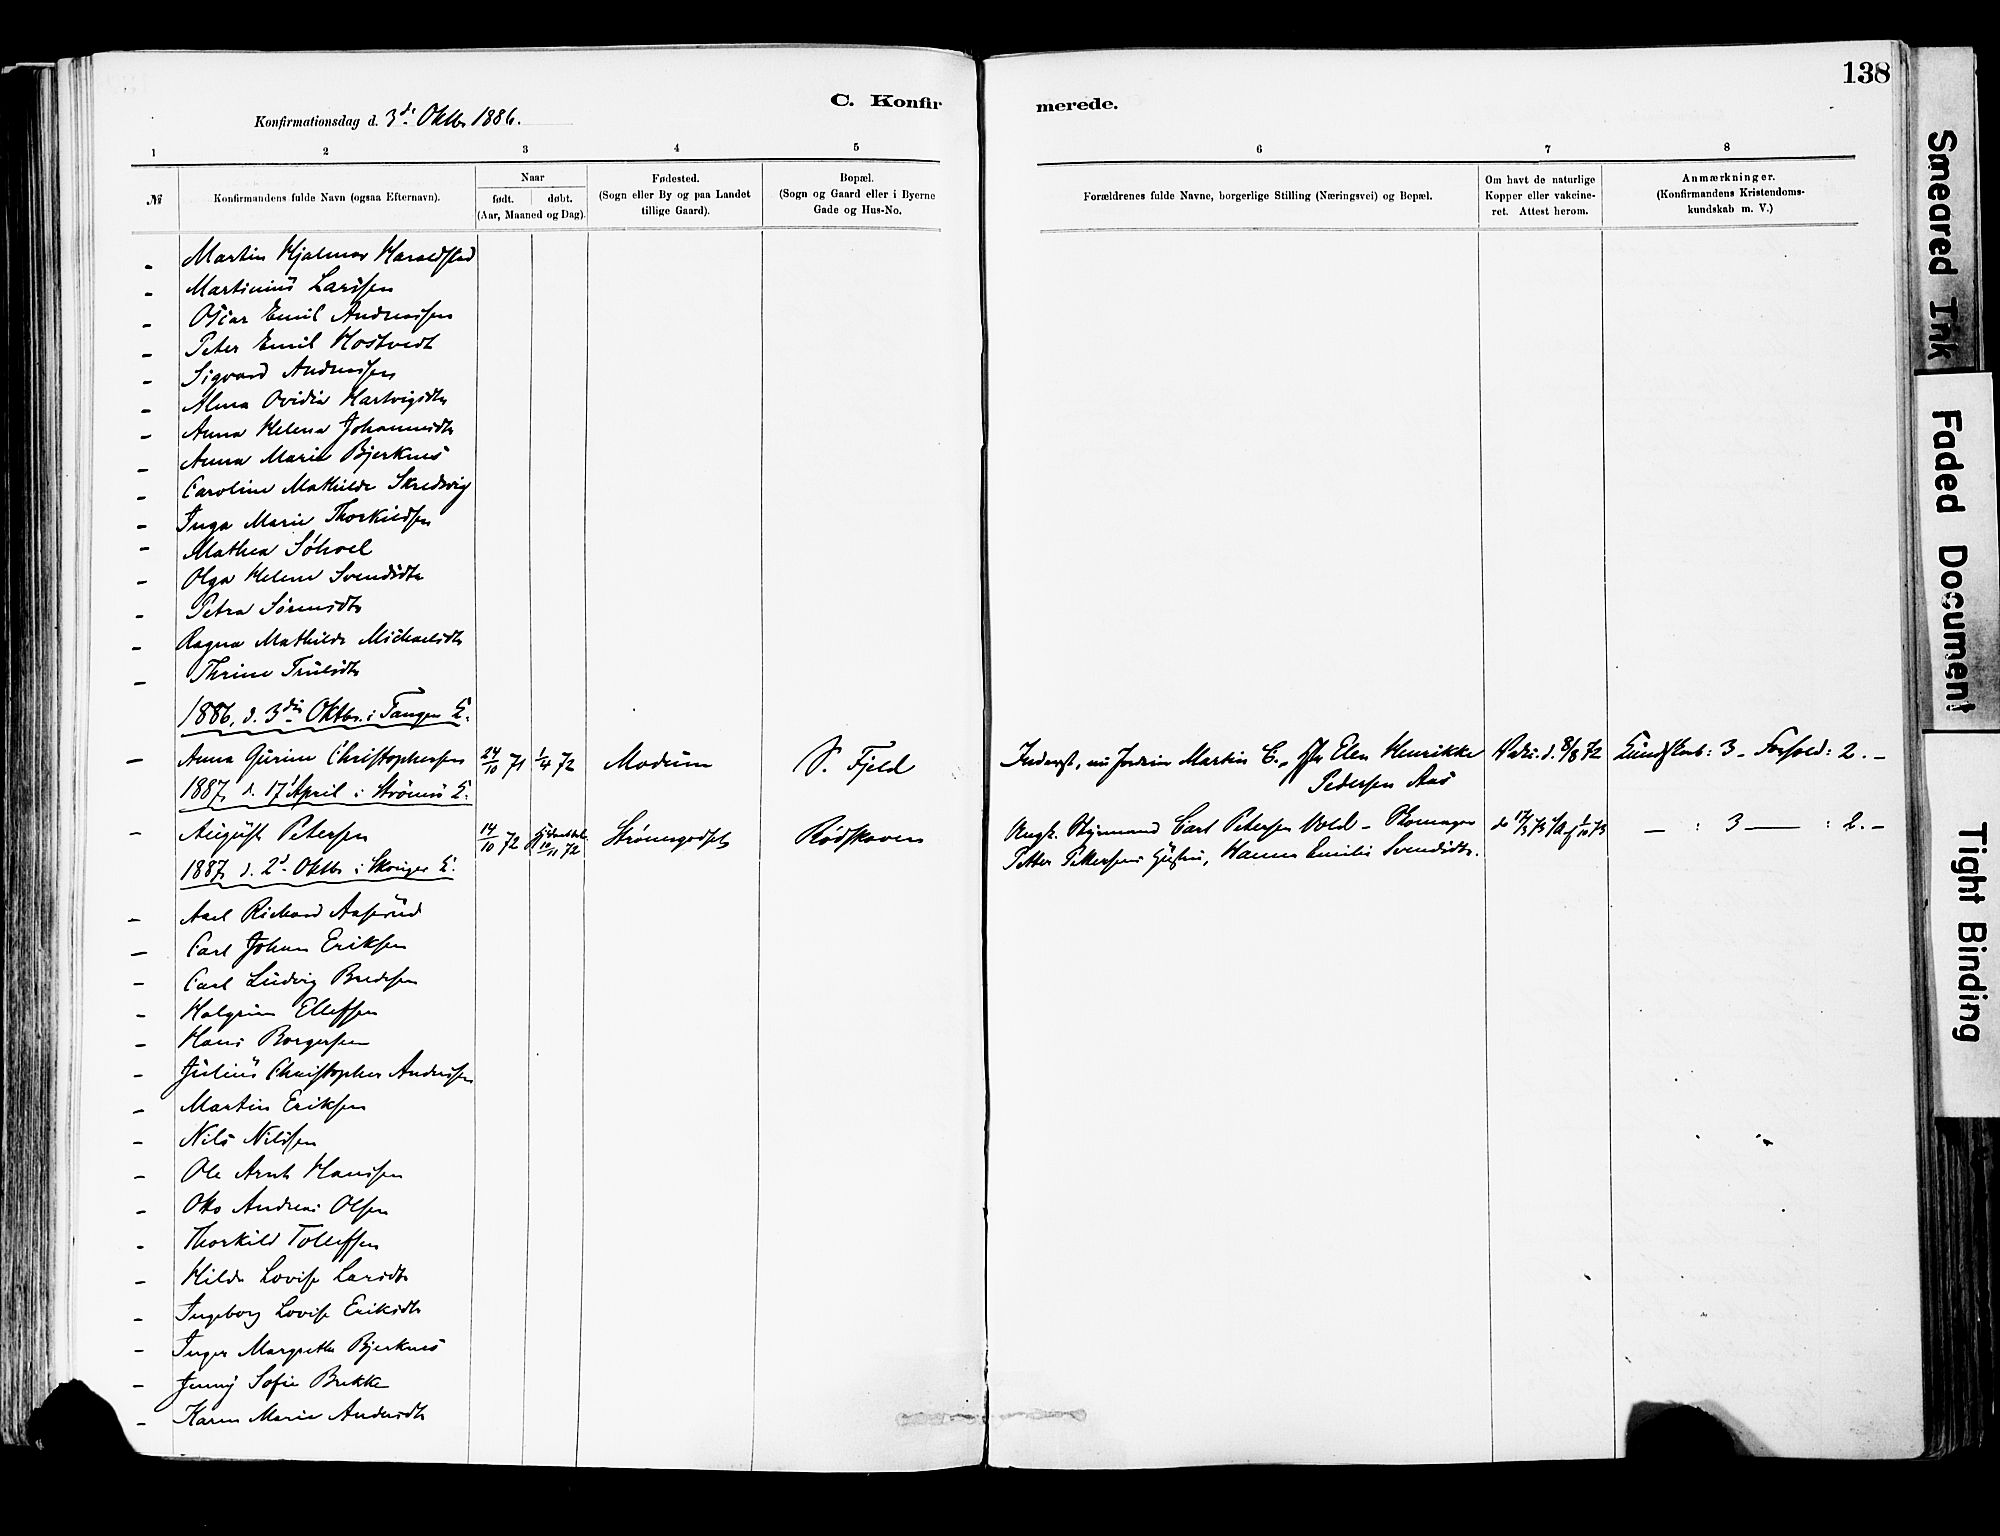 138
C. Konfir
merede.
Konfirmationsdag d. 3di Oktbr 1886.
1 2 3 4 5 6 7 8
№
Konfirmandens fulde Navn (ogsaa Efternavn).
Naar
født. døbt.
(Aar, Maaned og Dag).
Fødested.
(Sogn eller By og paa Landet
tillige Gaard).
Bopæl.
(Sogn og Gaard eller i Byerne
Gade og Hus-No.
Forældrenes fulde Navne, borgerlige Stilling (Næringsvei) og Bopæl.
Om havt de naturlige
Kopper eller vakcine-
ret. Attest herom.
Anmærkninger.
(Konfirmandens Kristendoms-
kundskab m. V.)
- Martin Hjalmar Haraldstad
- Martinius Larssen
- Oscar Emil Andreassen
- Peter Emil Hostvedt
- Sigvard Andreassen
- Alma Ovidia Hartvigsdtr
- Anna Helena Johannesdtr
- Anna Marie Bjerknes
- Caroline Mathilde Skredsvig
- Inga Marie Thorkildsen
- Mathea Söhoel
- Olga Helene Svendsdtr
- Petra Sörensdtr
- Ragna Mathilde Michaelsdtr
- Thrine Trulsdtr
1886, d. 3die Oktbr. i Tangen K.
- Anna Gurine Christophersen 24/10 71 1/4 72 Modum S. Fjeld Inderst, nu Martin C. Elen Henrikke Vakc. d. 8/8 72 Kundskab: 3 - Forhold: 2. -
Pedersen Aas
1887, d. 17 April i Strömsö K.
- August Petersen 14/10 72 10/11 72 Strömsgodset Rödskoven Ungk. Styrmand Carl Petersen Vold - - : 3 - : 2. -
Petter Pettersens Hanna Emilie Svendsdtr.
1887, d. 2d Oktbr i Skoger K.
- Axel Richard Aaserud
- Carl Johan Eriksen
- Carl Ludvig Bredesen
- Halgrim Ellefsen
- Hans Borgersen
- Julius Christopher Andersen
- Martin Eriksen
- Nils Nilssen
- Ole Arnt Hanssen
- Otto Andreas Olsen
- Thorkild Tollefsen
- Hilda Lovise Larsdtr
- Ingeborg Lovise Eriksdtr
- Inger Margrethe Bjerknes
- Jenny Sofie Brekke
- Karen Marie Andersdtr
Smeared Ink
Faded Document
Tight Binding